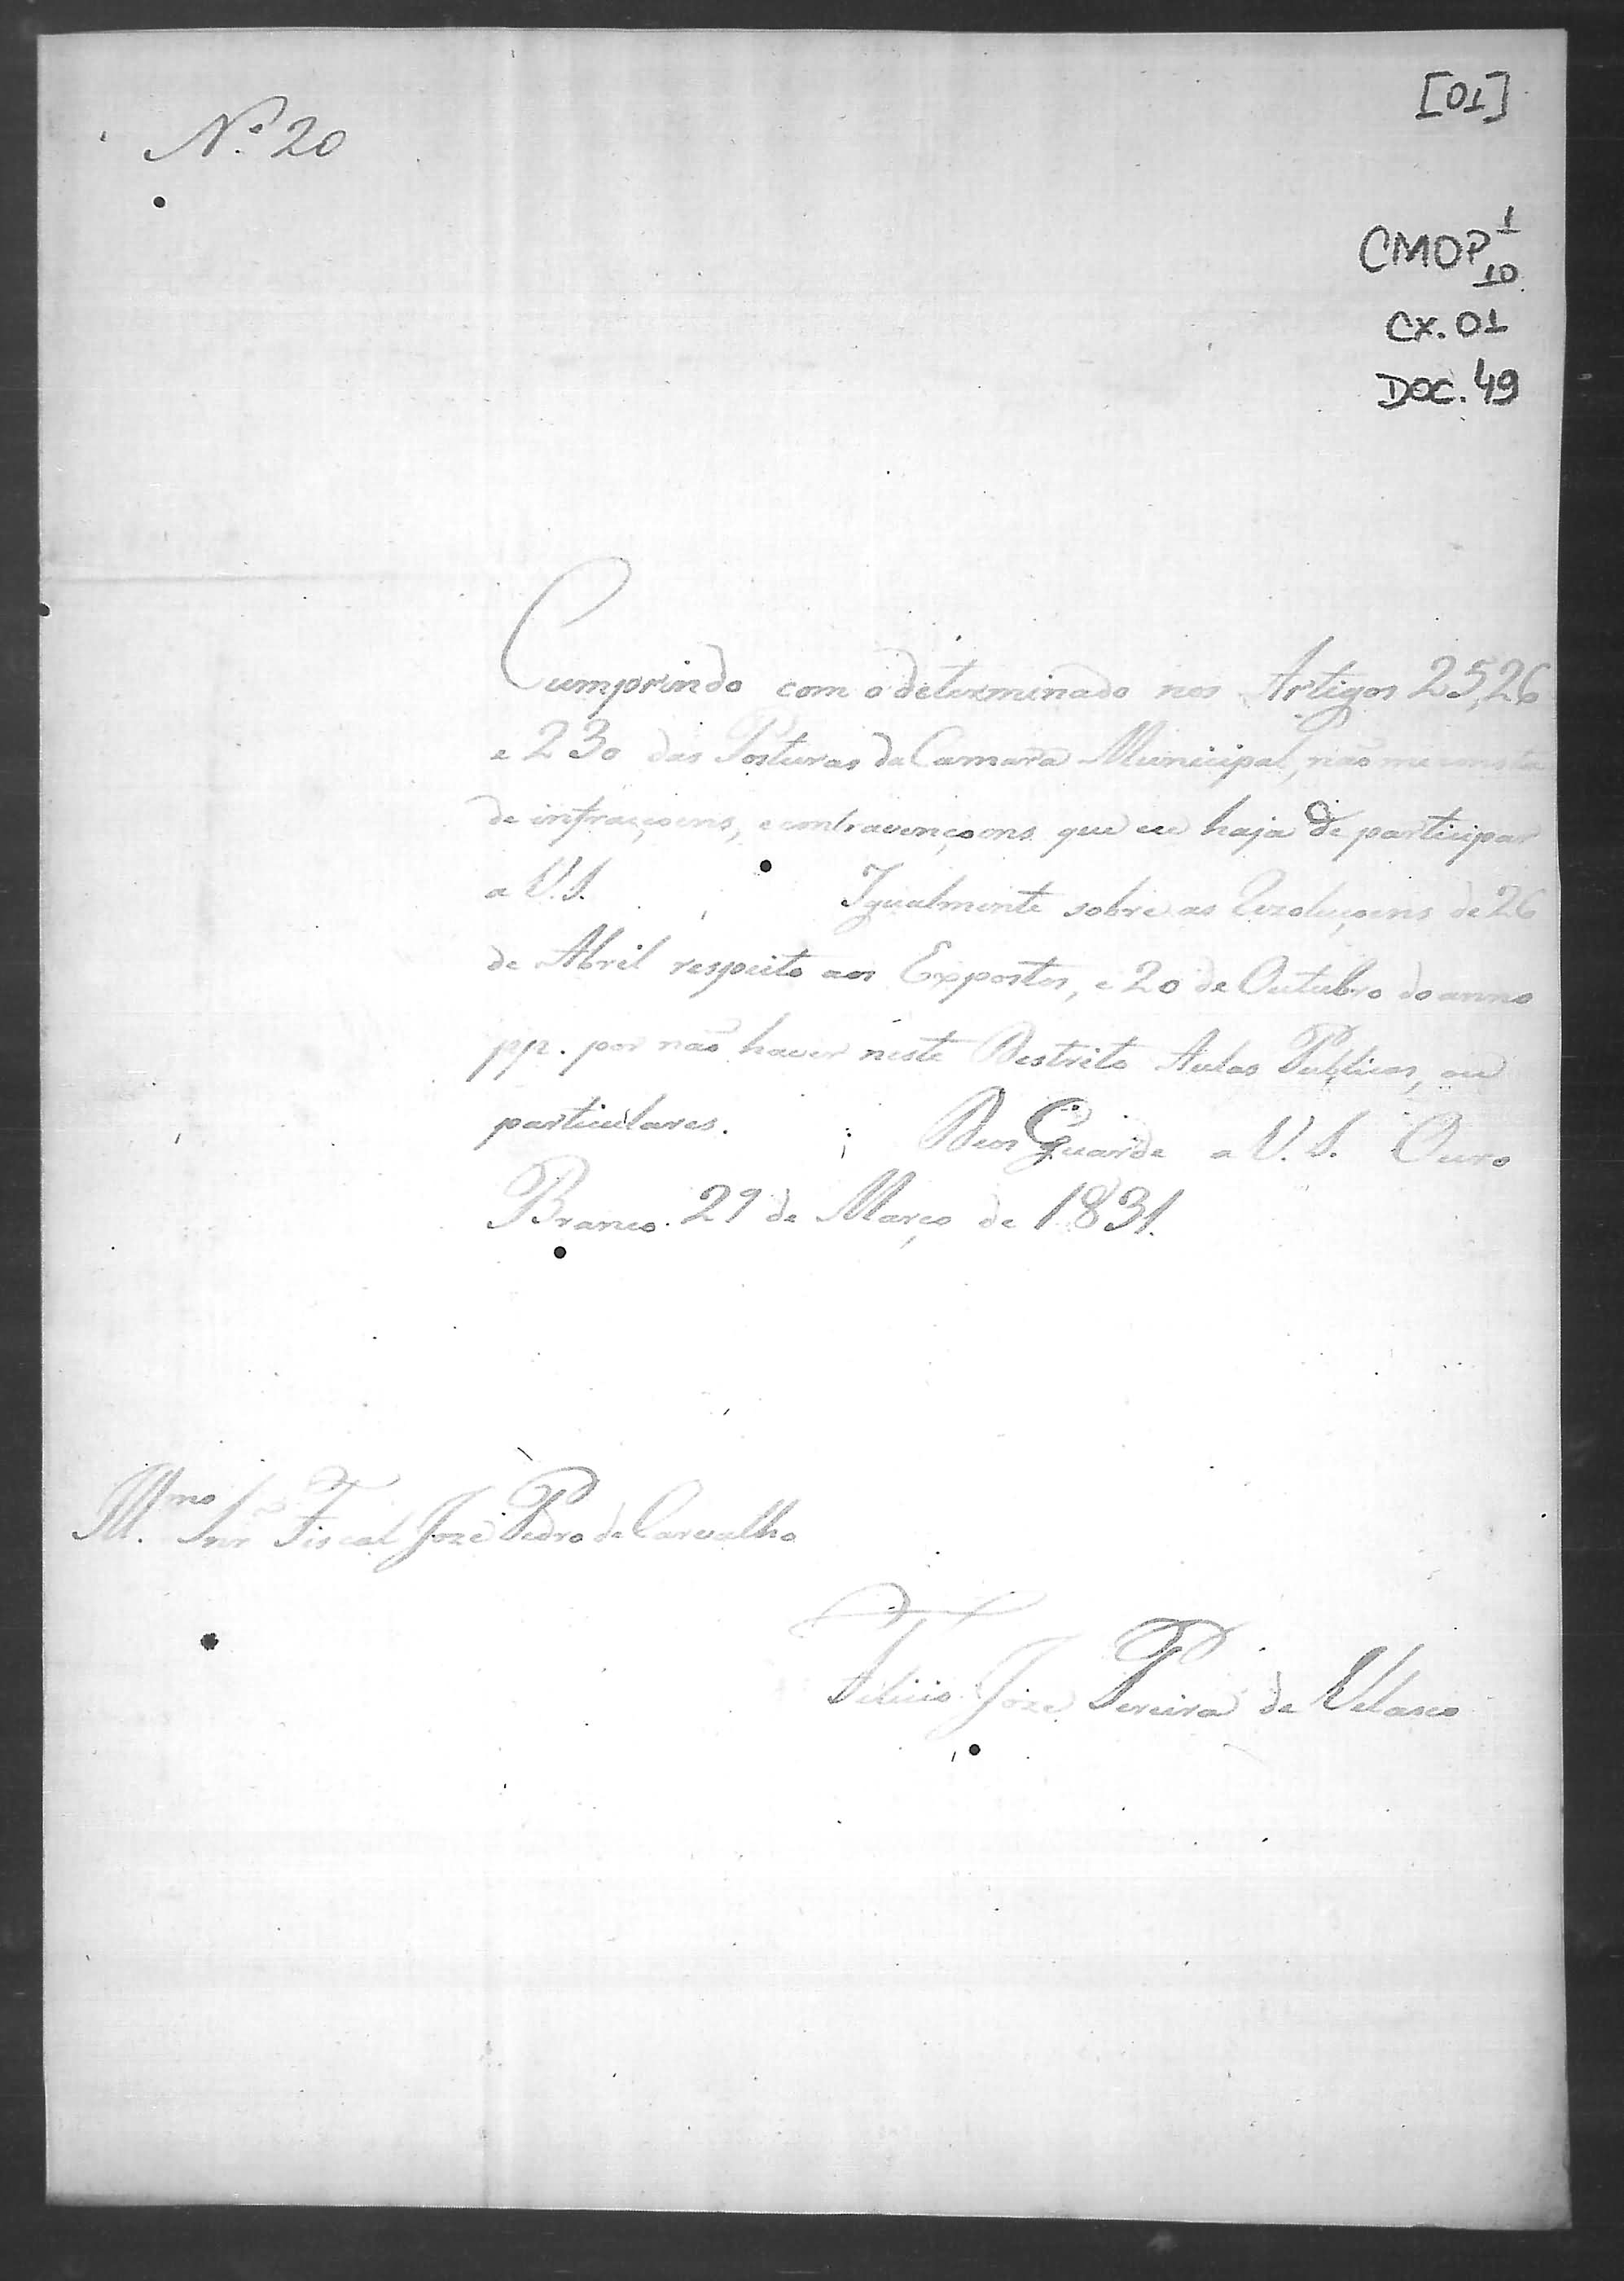 [01]
Nº 20
CMOP 1
10
CX. 01
DOC. 49
Cumprindo com o determinado nos Artigos 25, 26
e 230 das Posturas da Camara Municipal, não me consta
de infraçoens, e contravençoens que eu haja de participar
a V.S. Igualmente sobre as Rezoluçoens de 26
de Abril respeito aos Expostos, e 20 de Outubro do anno
pp. por não haver neste Destrito Aulas Publicas, ou
particulares. Deos Guarde a V.S. Ouro
Branco. 29 de Março de 1831.
Illmo Snr Fiscal Jozé Pedro de Carvalho
Felicio Joze Pereira de Velasco